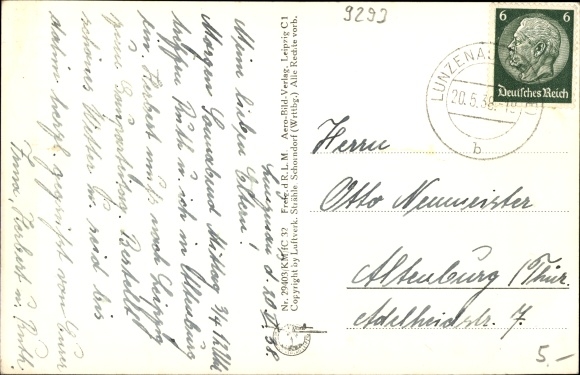 9293
Lunzenau d. 20.V.38.
Meine lieben Eltern!
Morgen Sonnabend Mittag 3/4 1 Uhr
treffen Ruth u. ich in Altenburg
ein. Herbert muß nach Leipzig
zum
schönes Wetter u. seid bis
dahin herzl. gegrüßt von Eurer
Herbert u. Ruth.
Nr. 29403/KM/C 32 Freig. d. R. L. M. Aero-Bild-Verlag, Leipzig C 1
Copyright by Luftverk. Strähle, Schorndorf (Wrttbg.) Alle Rechte vorb.
6 6
Deutsches Reich
LUNZENAU
20.5.38
b
Herrn
Otto Neumeister
Altenburg /Thür.
Adelheidstr. 7.
5.-